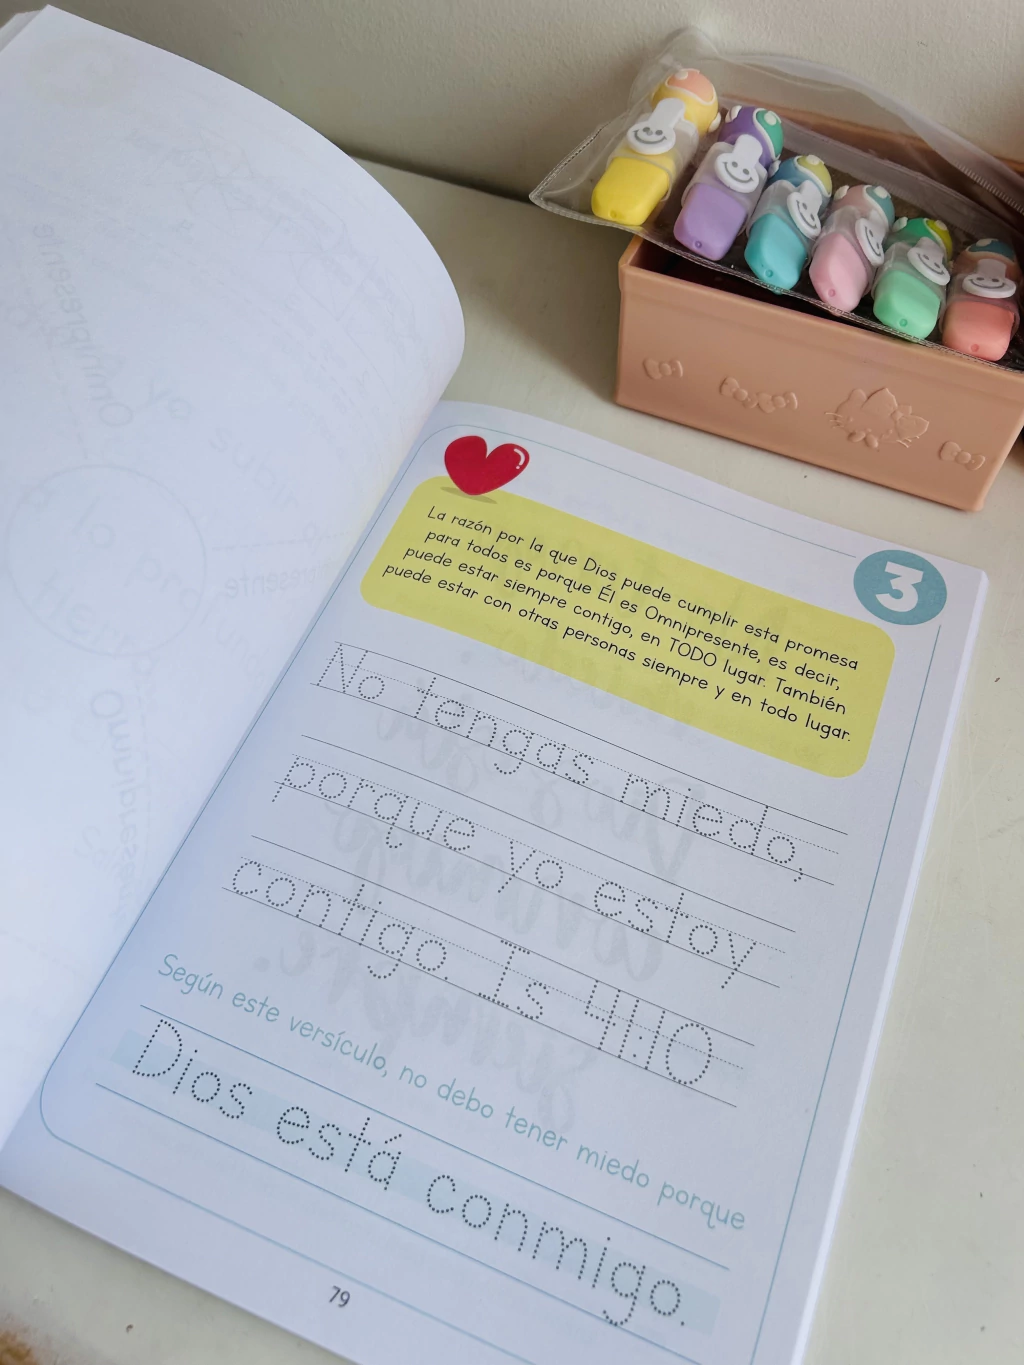 3
La razón por la que Dios puede cumplir esta promesa
para todos es porque Él es Omnipresente, es decir,
puede estar siempre contigo, en TODO lugar. También
puede estar con otras personas siempre y en todo lugar.
No tengas miedo,
porque yo estoy
contigo. Is 41:10
Según este versículo, no debo tener miedo porque
Dios está conmigo.
79